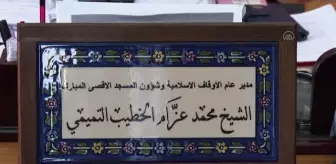 مدير عام الاوقاف الاسلامية وشؤون المسجد الأقصى المبارك
الشيخ محمد عزّام الخطيب التميمي